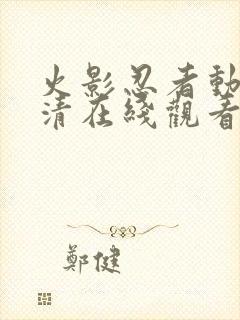 火影忍者動
清在綫觀看
鄭健